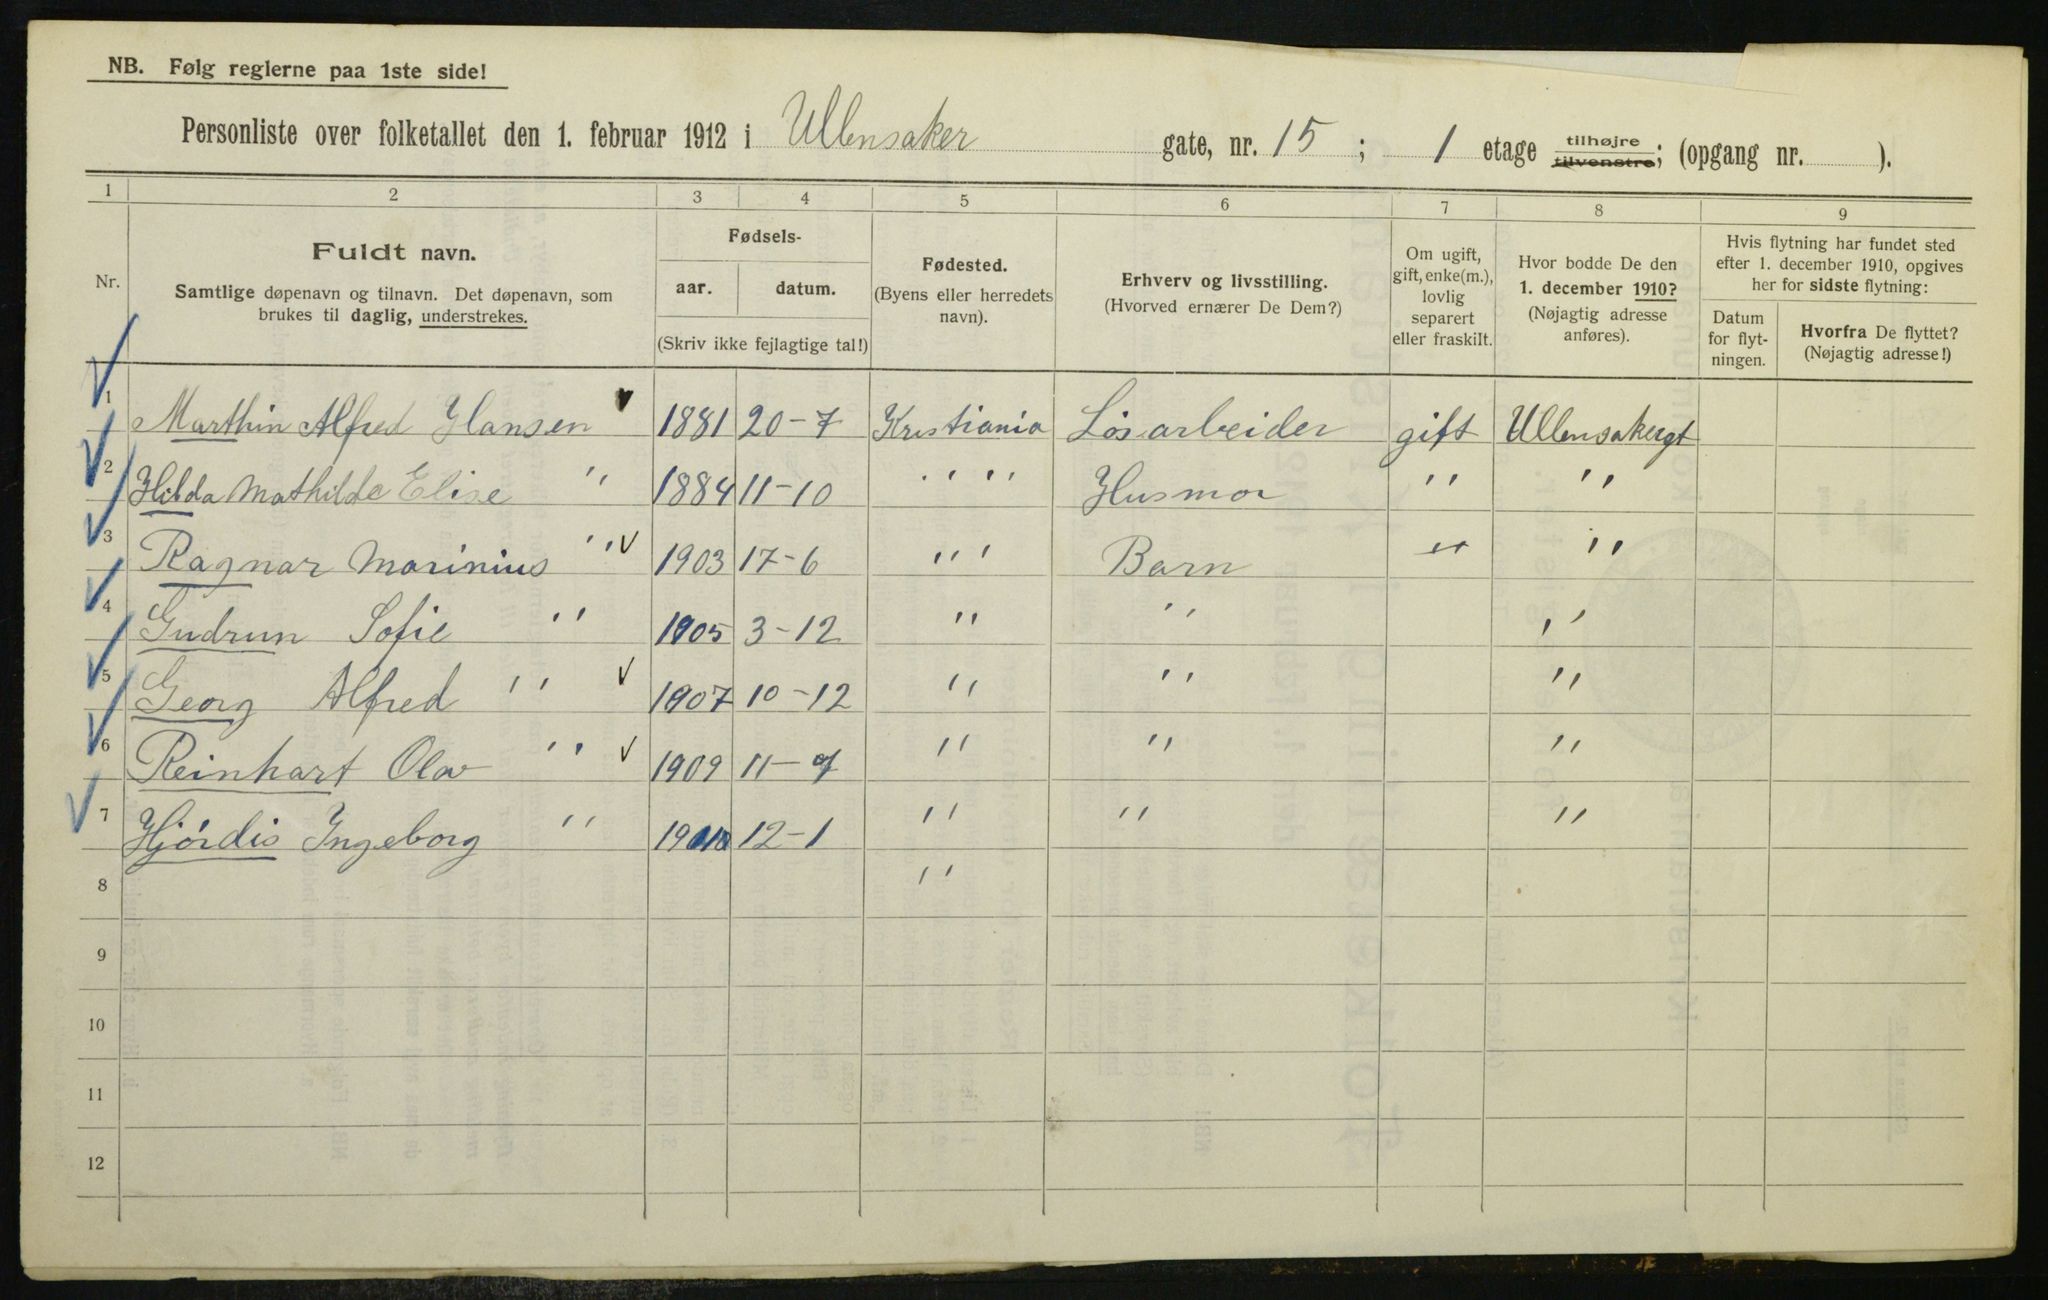 NB. Følg reglerne paa 1ste side!
Personliste over folketallet den 1. februar 1912 i Ullensaker gate, nr. 15 ; 1 etage tilhøjre tilvenstre; (opgang nr. ).
1 2 3 4 5 6 7 8 9
Nr.
Fuldt navn.
Samtlige døpenavn og tilnavn. Det døpenavn, som
brukes til daglig, understrekes.
Fødsels-
aar. datum.
(Skriv ikke fejlagtige tal!)
Fødested.
(Byens eller herredets
navn).
Erhverv og livsstilling.
(Hvorved ernærer De Dem?)
Om ugift,
gift, enke(m.),
lovlig
separert
eller fraskilt.
Hvor bodde De den
1. december 1910?
(Nøjagtig adresse
anføres).
Hvis flytning har fundet sted
efter 1. december 1910, opgives
her for sidste flytning:
Datum
for flyt-
ningen.
Hvorfra De flyttet?
(Nøjagtig adresse!)
1 Marthin Alfred Hansen 1881 20-7 Kristiania Løsarbeider gift Ullensakergt
2 Hilda Mathilde Elise " 1884 11-10 " " Husmor " "
3 Ragnar Marinius " 1903 17-6 " ' Barn " "
4 Gudrun Sofie " 1905 3-12 " " "
5 Georg Alfred " 1907 10-12 " " "
6 Reinhart Olav " 1909 11-9 " " "
7 Hjørdis Ingeborg " 12-1 " " "
8 "
9
10
11
12